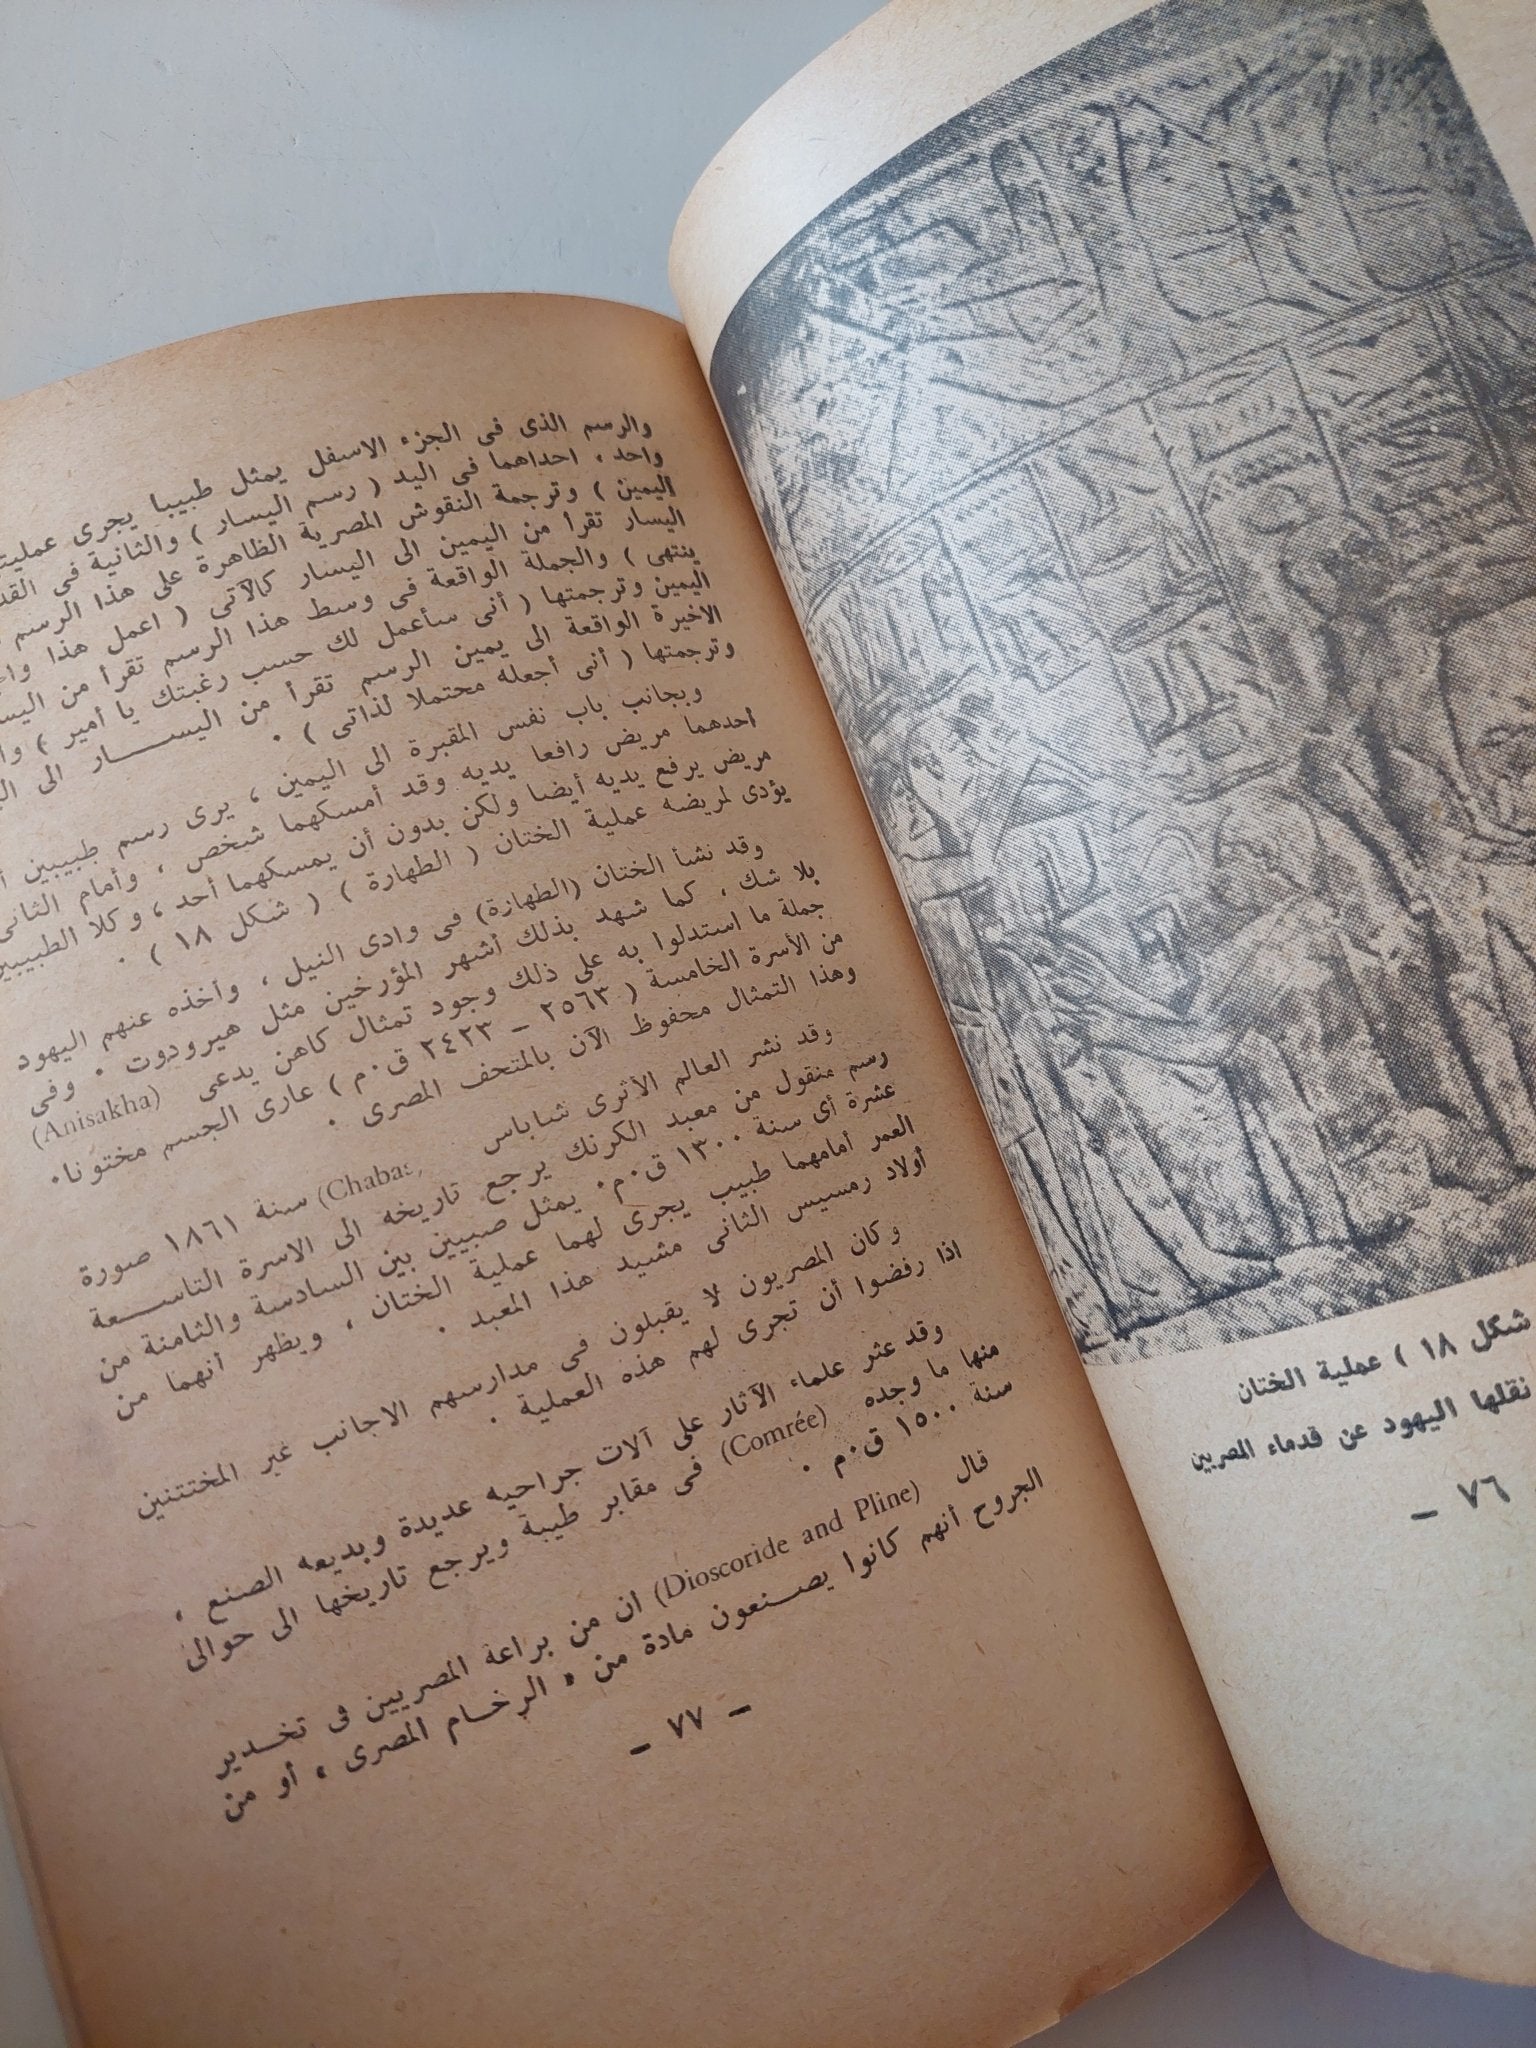 شكل ١٨ ) عملية الختان
نقلها اليهود عن قدماء المصريين
٧٦ -
والرسم الذى فى الجزء الاسفل يمثل طبيبا يجرى
واحد ، احداهما فى اليد ( رسم اليسار ) والثانية فى
اليمين ) وترجمة النقوش المصرية الظاهرة على هذا الرسم
اليسار تقرأ من اليمين الى اليسار كالآتى ( اعمل هذا
ينتهى ) والجملة الواقعة فى وسط هذا الرسم تقرأ من
اليمين وترجمتها ( أنى سأعمل لك حسب رغبتك يا أمير )
الاخيرة الواقعة الى يمين الرسم تقرأ من اليســـار الى
وترجمتها ( أنى أجعله محتملا لذاتى ) .
وبجانب باب نفس المقبرة الى اليمين ، يرى رسم طبيبين
أحدهما مريض رافعا يديه وقد أمسكهما شخص ، وأمام الثانى
مريض يرفع يديه أيضا ولكن بدون أن يمسكهما أحد ، وكلا
يؤدى لمريضه عملية الختان ( الطهارة ) ( شكل ١٨ ) .
وقد نشأ الختان (الطهازة) فى وادى النيل ، وأخذه عنهم اليهود
بلا شك ، كما شهد بذلك أشهر المؤرخين مثل هيرودوت . وفى
جملة ما استدلوا به على ذلك وجود تمثال كاهن يدعى (Anisakha)
من الأسرة الخامسة ( ٢٥٦٣ – ٢٤٢٣ ق.م ) عارى الجسم مختونا.
وهذا التمثال محفوظ الآن بالمتحف المصرى .
وقد نشر العالم الأثرى شاباس (Chabas) سنة ١٨٦١ صورة
رسم منقول من معبد الكرنك يرجع تاريخه الى الاسرة التاســعة
عشرة أى سنة ١٣٠٠ ق.م. يمثل صبيين بين السادسة والثامنة من
العمر أمامهما طبيب يجرى لهما عملية الختان ، ويظهر أنهما من
أولاد رمسيس الثانى مشيد هذا المعبد .
وكان المصريون لا يقبلون فى مدارسهم الاجانب غير المختتنين
اذا رفضوا أن تجرى لهم هذه العملية .
وقد عثر علماء الآثار على آلات جراحيه عديدة وبديعه الصنع ،
منها ما وجده (Comrée) فى مقابر طيبة ويرجع تاريخها الى حوالى
سنة ١٥٠٠ ق.م .
قال (Dioscoride and Pline) ان من براعة المصريين فى تخــدير
الجروح أنهم كانوا يصــنعون مادة من « الرخــام المصرى » أو من
- ٧٧ -